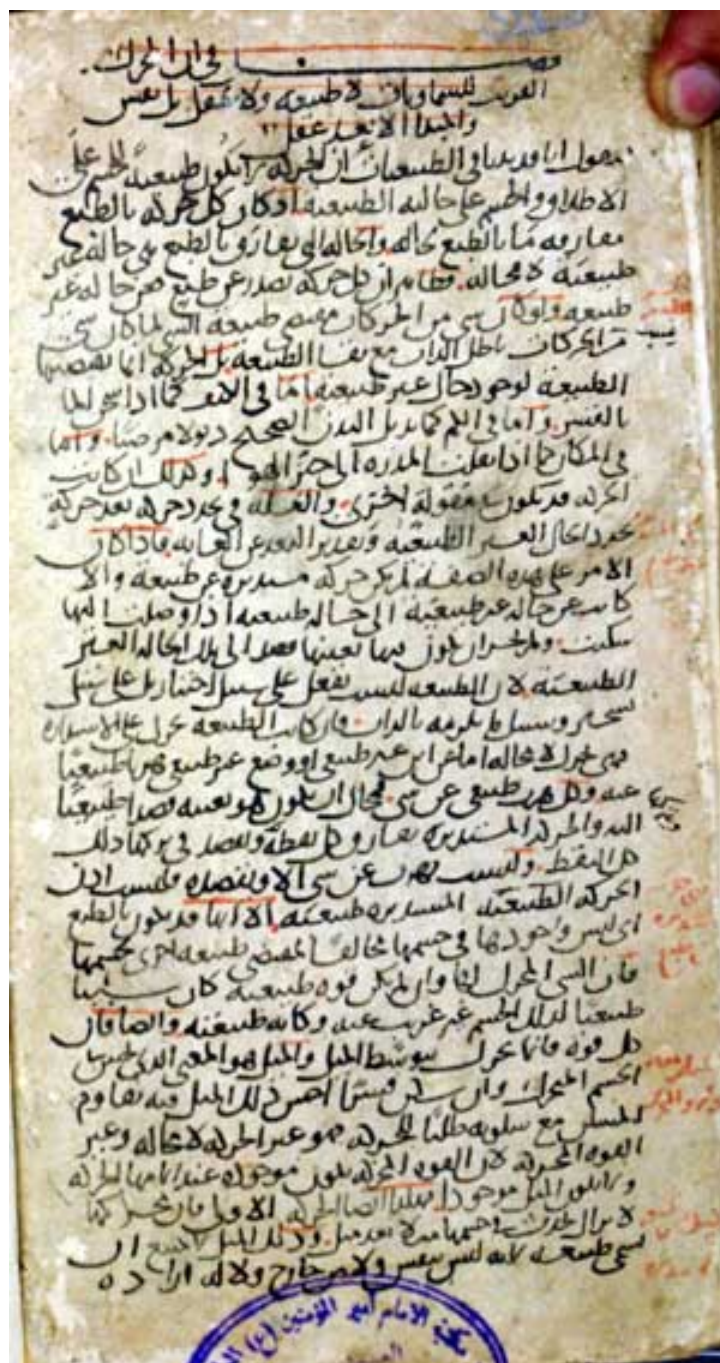 فصل في ان المحرك
القريب للسماويات لا طبيعة ولا عقل بل نفس
والمبدا الابعد عقل
نقول انا قد بينا في الطبيعيات ان الحركة لا تكون طبيعية للجسم على
الاطلاق والجسم على حالته الطبيعية اذ كان كل حركة بالطبع
مفارقة ما بالطبع لحالة والحالة التي تفارق بالطبع هي حالة غير
طبيعية لا محالة فظاهر ان كل حركة تصدر عن طبع فعن حالة غير
طبيعية ولو كان شي من الحركات مقتضى طبيعة الشي لما كان شي
من الحركات باطل الذات مع بقا الطبيعة بل الحركة انما تقتضيها
الطبيعة لوجود حال غير طبيعية اما في الكيف كما اذا سخن الما
بالقسر واما في الكم كما يذبل البدن الصحيح ذبولا مرضيا واما
في المكان كما اذا نقلت المدرة الى حيز الهوا وكذلك ان كانت
الحركة قد تكون في مقولة اخرى والعلة في تجدد حركة بعد حركة
تجدد الحال الغير الطبيعية وتقدير البعد عن الغاية فاذا كان
الامر على هذه الصفة لم يكن حركة مستديرة عن طبيعة والا
كانت عن حالة غير طبيعية الى حالة طبيعية اذا وصلت اليها
سكنت ولم يجز ان يكون فيها بعينها قصد الى تلك الحالة الغير
الطبيعية لان الطبيعة ليست تفعل على سبيل اختيار بل على سبيل
تسخير وسبيل ما يلزمه بالذات فان كانت الطبيعة تحرك على الاستدارة
فهي تحرك لا محالة اما عن اين غير طبيعي او وضع غير طبيعي هربا طبيعيا
عنه وكل هرب طبيعي عن شي فمحال ان يكون هو بعينه قصدا طبيعيا
اليه والحركة المستديرة تفارق كل نقطة وتقصد في تركها ذلك
كل النقط وليست تهرب عن شي الا وتقصده فليست اذن
الحركة الطبيعية المستديرة طبيعية الا انها قد تكون بالطبع
اي ليس وجودها في جسمها مخالفا لمقتضى طبيعة اخرى لجسمها
فان الشي المحرك لها وان لم يكن قوة طبيعية كان شيئا
طبيعيا لذلك الجسم غير غريب عنه وكانه طبيعته وايضا فان
كل قوة فانما تحرك بتوسط الميل والميل هو المعنى الذي يحس في
الجسم المتحرك وان سكن قسرا احس ذلك الميل فيه يقاوم
المسكن مع سكونه طلبا للحركة فهو غير الحركة لا محالة وغير
القوة المحركة لان القوة المحركة تكون موجودة عند اتمامها الحركة
ولا يكون الميل موجودا فهكذا ايضا الحركة الاولى فان محركها
لا يزال يحدث في جسمها ميلا بعد ميل وذلك الميل لا يمتنع ان
يسمى طبيعة لانه ليس بنفس ولا من خارج ولا له ارادة
مكتبة الامام امير المؤمنين (ع)